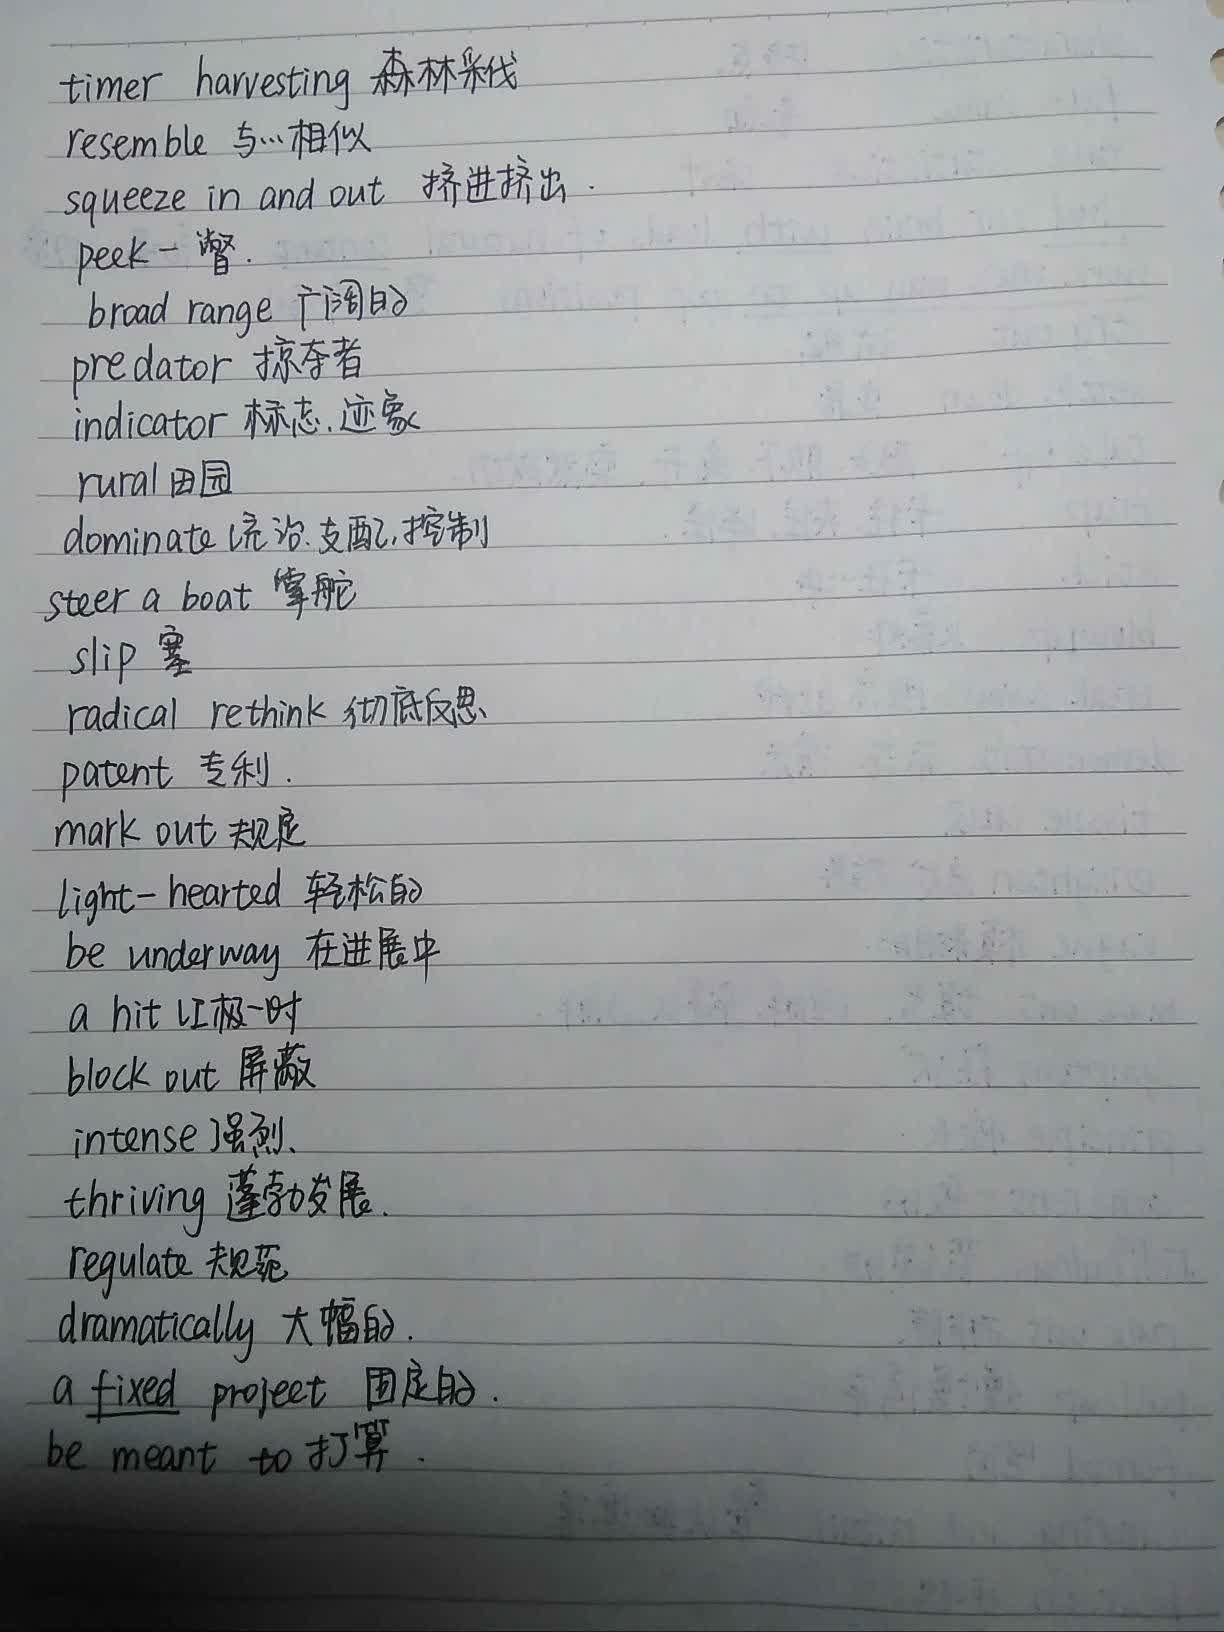 timer harvesting 森林采伐
resemble 与…相似
squeeze in and out 挤进挤出.
peek 一瞥.
broad range 广阔的
predator 掠夺者
indicator 标志.迹象
rural 田园
dominate 统治.支配,控制
steer a boat 掌舵
slip 塞
radical rethink 彻底反思
patent 专利.
mark out 规定
light-hearted 轻松的
be underway 在进展中
a hit 红极一时
block out 屏蔽
intense 强烈、
thriving 蓬勃发展.
regulate 规范
dramatically 大幅的.
a fixed project 固定的.
be meant to 打算.